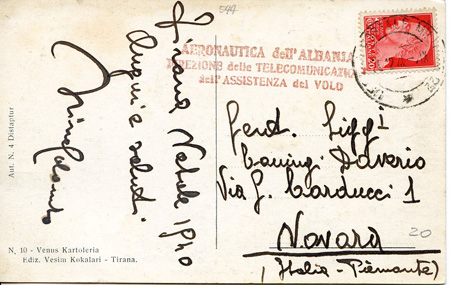 544
Tirana Natale 1940
Auguri e saluti
AERONAUTICA dell'ALBANIA
DIREZIONE delle TELECOMUNICAZIO
dell'ASSISTENZA del VOLO
Gent. Sigg¹
Coniug. Daverio
Via G. Carducci 1
Novara
(Italia - Piemonte)
20
Aut. N. 4 Distaptur
N. 10 - Venus Kartoleria
Ediz. Vesim Kokalari - Tirana.